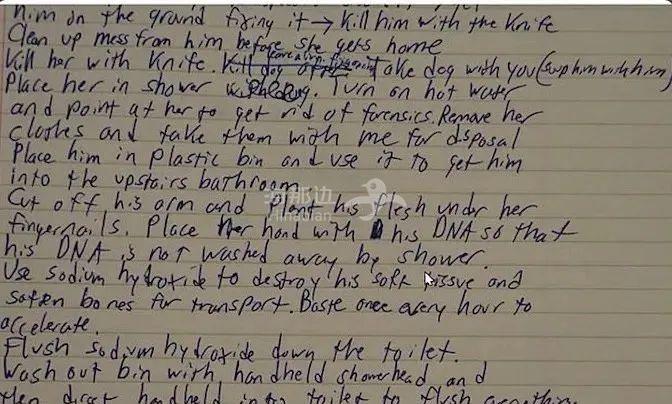 him on the ground fixing it → Kill him with the Knife
Clean up mess from him before she gets home
Kill her with Knife. Take dog with you
Place her in shower. Turn on hot water
and point at her to get rid of forensics. Remove her
clothes and take them with me for disposal
Place him in plastic bin and use it to get him
into the upstairs bathroom
Cut off his arm and plant his flesh under her
fingernails. Place her hand with his DNA so that
his DNA is not washed away by shower.
Use sodium hydroxide to destroy his soft tissue and
soften bones for transport. Baste once every hour to
accelerate.
Flush sodium hydroxide down the toilet.
Wash out bin with handheld showerhead and
then direct handheld into toilet to flush everything
海那边
Hinabian